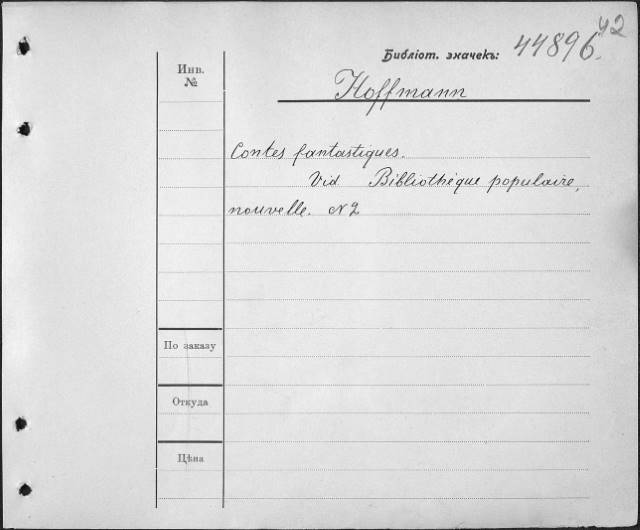 42
Библіот. значекъ: 44896.
Инв.
№
Hoffmann
Contes fantastiques.
Vid Bibliothèque populaire,
nouvelle. N2
По заказу
Откуда
Цѣна